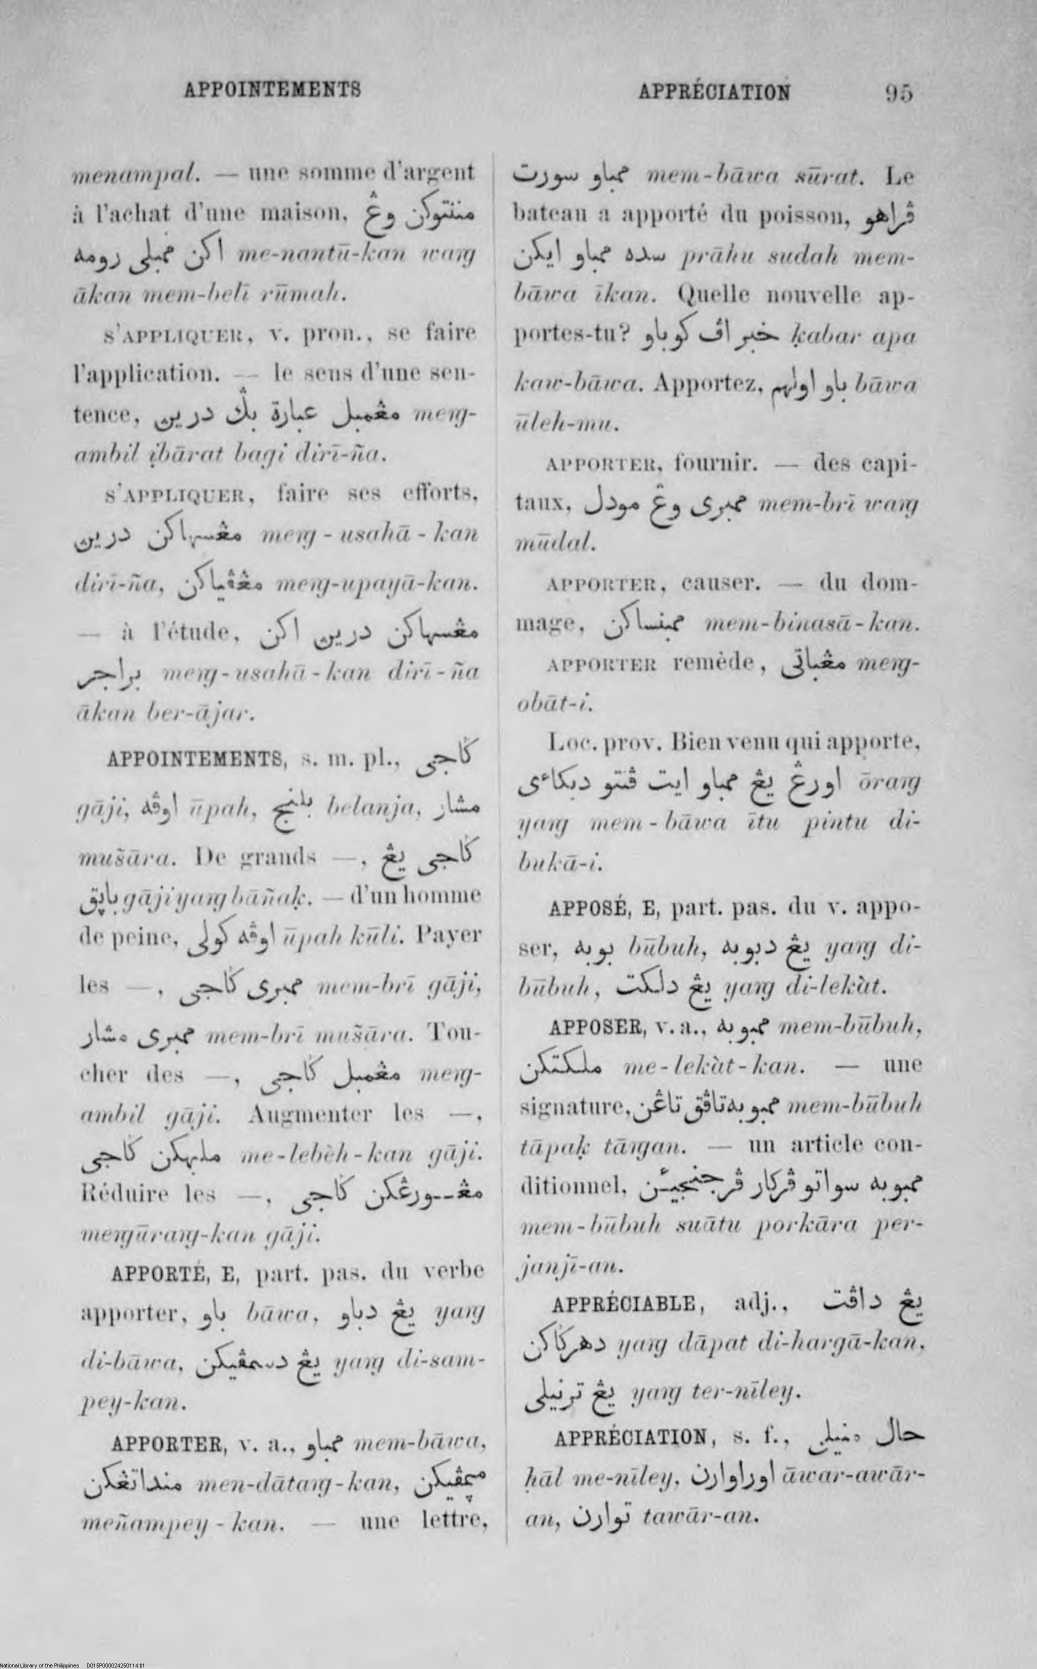 APPOINTEMENTS
APPRÉCIATION 95
menampal. — une somme d'argent
à l'achat d'une maison, مننتوکن وڠ
اکن ممبلی رومه me-nantū-kan waṅg
ākan mem-belī rūmah.
S'APPLIQUER, v. pron., se faire
l'application. — le sens d'une sen-
tence, مڠمبل عبارة بڬ درين meṅg-
ambil ịbārat bagi dirī-ña.
S'APPLIQUER, faire ses efforts,
مڠسهاکن درين meṅg-usahā-kan
dirī-ña, مڠڤياکن meṅg-upayā-kan.
— à l'étude, مڠسهاکن درين اکن
براجر meṅg-usahā-kan dirī-ña
ākan ber-ājar.
APPOINTEMENTS, s. m. pl., ڬاجی
gāji, اوڤه ūpah, بلنج belanja, مشار
mušāra. De grands —, ڬاجی يڠ
باڽق gāji yaṅg bāñaḳ. — d'un homme
de peine, اوڤه کولی ūpah kūli. Payer
les —, ممبری ڬاجی mem-brī gāji,
ممبری مشار mem-brī mušāra. Tou-
cher des —, مڠمبل ڬاجی meṅg-
ambil gāji. Augmenter les —,
ملبهکن ڬاجی me-lebèh-kan gāji.
Réduire les —, مڠورڠکن ڬاجی
meṅgūraṅg-kan gāji.
APPORTÉ, E, part. pas. du verbe
apporter, باو bāwa, يڠ دباو yaṅg
di-bāwa, يڠ دسمڤيکن yaṅg di-sam-
pey-kan.
APPORTER, v. a., ممباو mem-bāwa,
منداتڠکن men-dātaṅg-kan, مڽمڤيکن
meñampey-kan. — une lettre,
ممباو سورت mem-bāwa sūrat. Le
bateau a apporté du poisson, ڤراهو
سده ممباو ايکن prāhu sudah mem-
bāwa īkan. Quelle nouvelle ap-
portes-tu? خبر اڤ کوباو ḳabar apa
kaw-bāwa. Apportez, باو اولهم bāwa
ūleh-mu.
APPORTER, fournir. — des capi-
taux, ممبری وڠ مودل mem-brī waṅg
mūdal.
APPORTER, causer. — du dom-
mage, ممبنساکن mem-binasā-kan.
APPORTER remède, مڠباتی meṅg-
obāt-i.
Loc. prov. Bien venu qui apporte,
اورڠ يڠ ممباو ايت ڤنتو دبکاءی ōraṅg
yaṅg mem-bāwa ītu pintu di-
bukā-i.
APPOSÉ, E, part. pas. du v. appo-
ser, بوبه būbuh, يڠ دبوبه yaṅg di-
būbuh, يڠ دلکت yaṅg di-lekàt.
APPOSER, v. a., ممبوبه mem-būbuh,
ملکتکن me-lekàt-kan. — une
signature, ممبوبه تاڤق تاڠن mem-būbuh
tāpaḳ tāṅgan. — un article con-
ditionnel, ممبوبه سواتو ڤرکار ڤرجنجيئن
mem-būbuh suātu porkāra per-
janjī-an.
APPRÉCIABLE, adj., يڠ داڤت
دهرڬاکن yaṅg dāpat di-hargā-kan,
يڠ ترنيلی yaṅg ter-nīley.
APPRÉCIATION, s. f., حال منيلی
ḥāl me-nīley, اوراوارن āwar-awār-
an, توارن tawār-an.
National Library of the Philippines